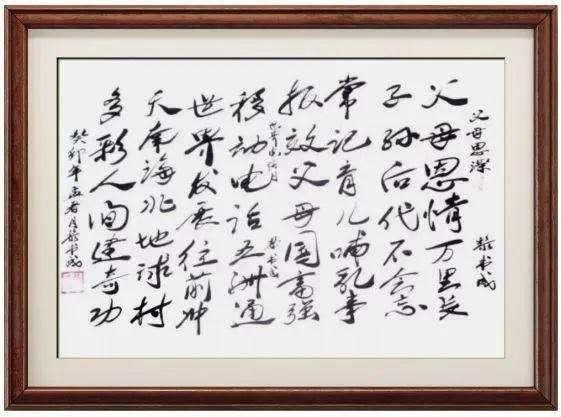 父母恩深
书成
父母恩情万里长
子孙后代不忘
常记育儿哺乳事
报效父母国富强
书成
移动电话五洲通
世界发展往前冲
天南海北地球村
多彩人间建奇功
癸卯年孟春月书成